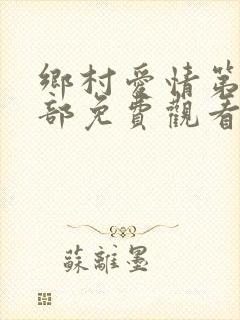 鄉村愛情第
部免費觀看
蘇離墨